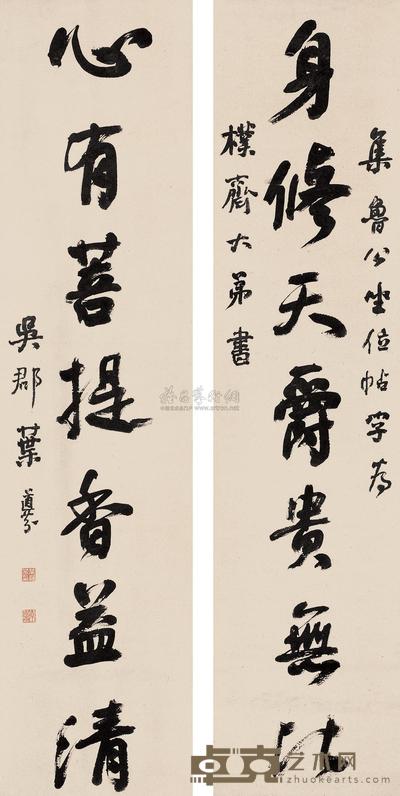 集魯公坐位帖字為
身修天爵貴無比
樸齋大弟書
心有菩提香益清
吳郡葉道芬
卓克艺术网
zhuokearts.com